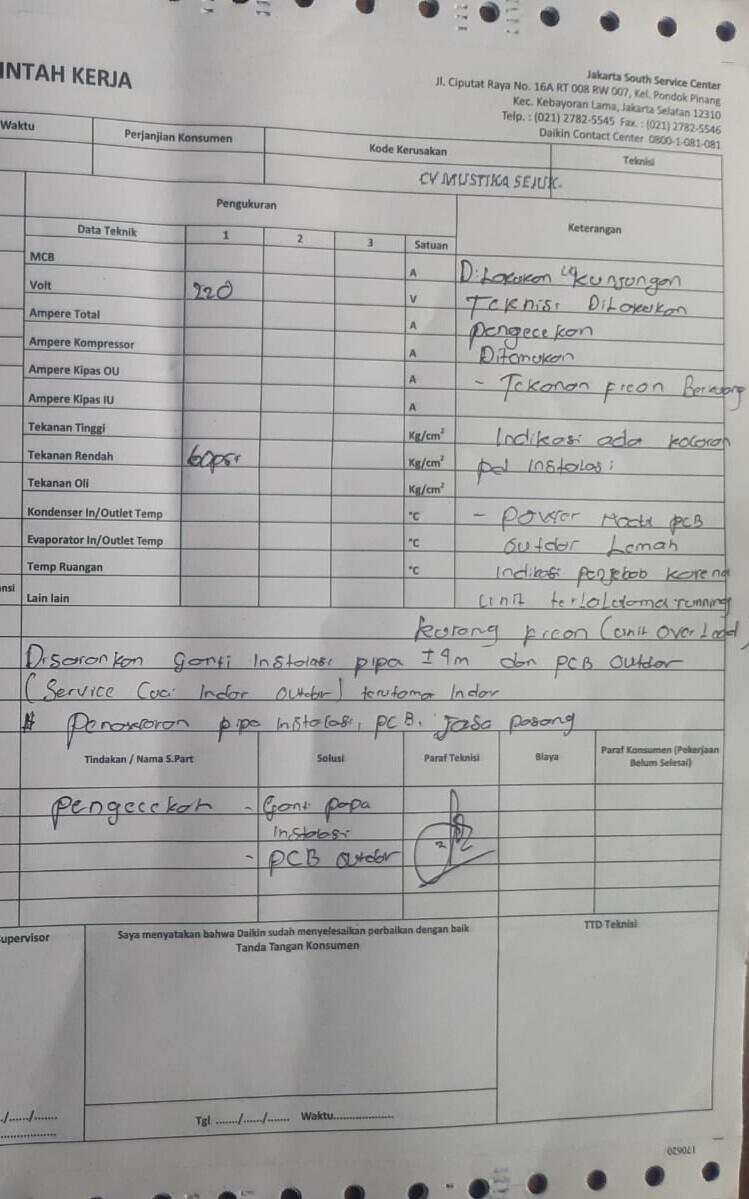 INTAH KERJA
Jakarta South Service Center
Jl. Ciputat Raya No. 16A RT 008 RW 007, Kel. Pondok Pinang
Kec. Kebayoran Lama, Jakarta Selatan 12310
Telp. : (021) 2782-5545 Fax. : (021) 2782-5546
Daikin Contact Center 0800-1-081-081
Waktu
Perjanjian Konsumen
Kode Kerusakan
Teknisi
CV MUSTIKA SEJUK.
Pengukuran
Keterangan
Data Teknik 1 2 3 Satuan
MCB A
Volt 220 V
Ampere Total A
Ampere Kompressor A
Ampere Kipas OU A
Ampere Kipas IU A
Tekanan Tinggi Kg/cm²
Tekanan Rendah 60psi Kg/cm²
Tekanan Oli Kg/cm²
Kondenser In/Outlet Temp °C
Evaporator In/Outlet Temp °C
Temp Ruangan °C
Lain lain
nsi
Dilakukan kunjungan
Teknisi Dilakukan
pengecekan
Ditemukan
- Tekanan freon Berkurang
Indikasi ada kocoran
pd instalasi
- Power Modul PCB
outdor Lemah
Indikasi penyebab karena
Unit terlalu lama running
kurang freon (unit over Load)
Disarankan ganti instalasi pipa ±4m dan PCB Outdor
(Service Cuci Indor Outdor) terutama Indor
# Penawaran pipa instalasi, PCB, Jasa pasang
Tindakan / Nama S.Part
Solusi
Paraf Teknisi
Biaya
Paraf Konsumen (Pekerjaan
Belum Selesai)
pengecekan - Ganti papa
instalasi
- PCB Outdor
upervisor
Saya menyatakan bahwa Daikin sudah menyelesaikan perbaikan dengan baik
Tanda Tangan Konsumen
TTD Teknisi
./....../.......
Tgl ......./....../....... Waktu...................
170620